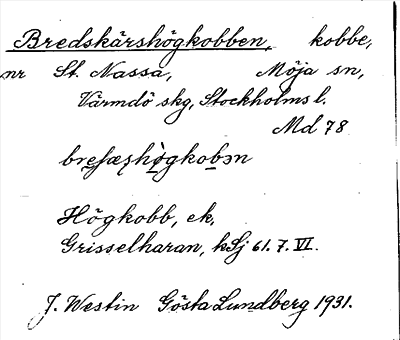 Bredskärshögkobben, kobbe,
nr St. Nassa, Möja sn,
Värmdö skg, Stockholms l.
Md 78
Högkobb, ek,
Grisselharan, kSj 61.7.VI.
J. Westin Gösta Lundberg 1931.